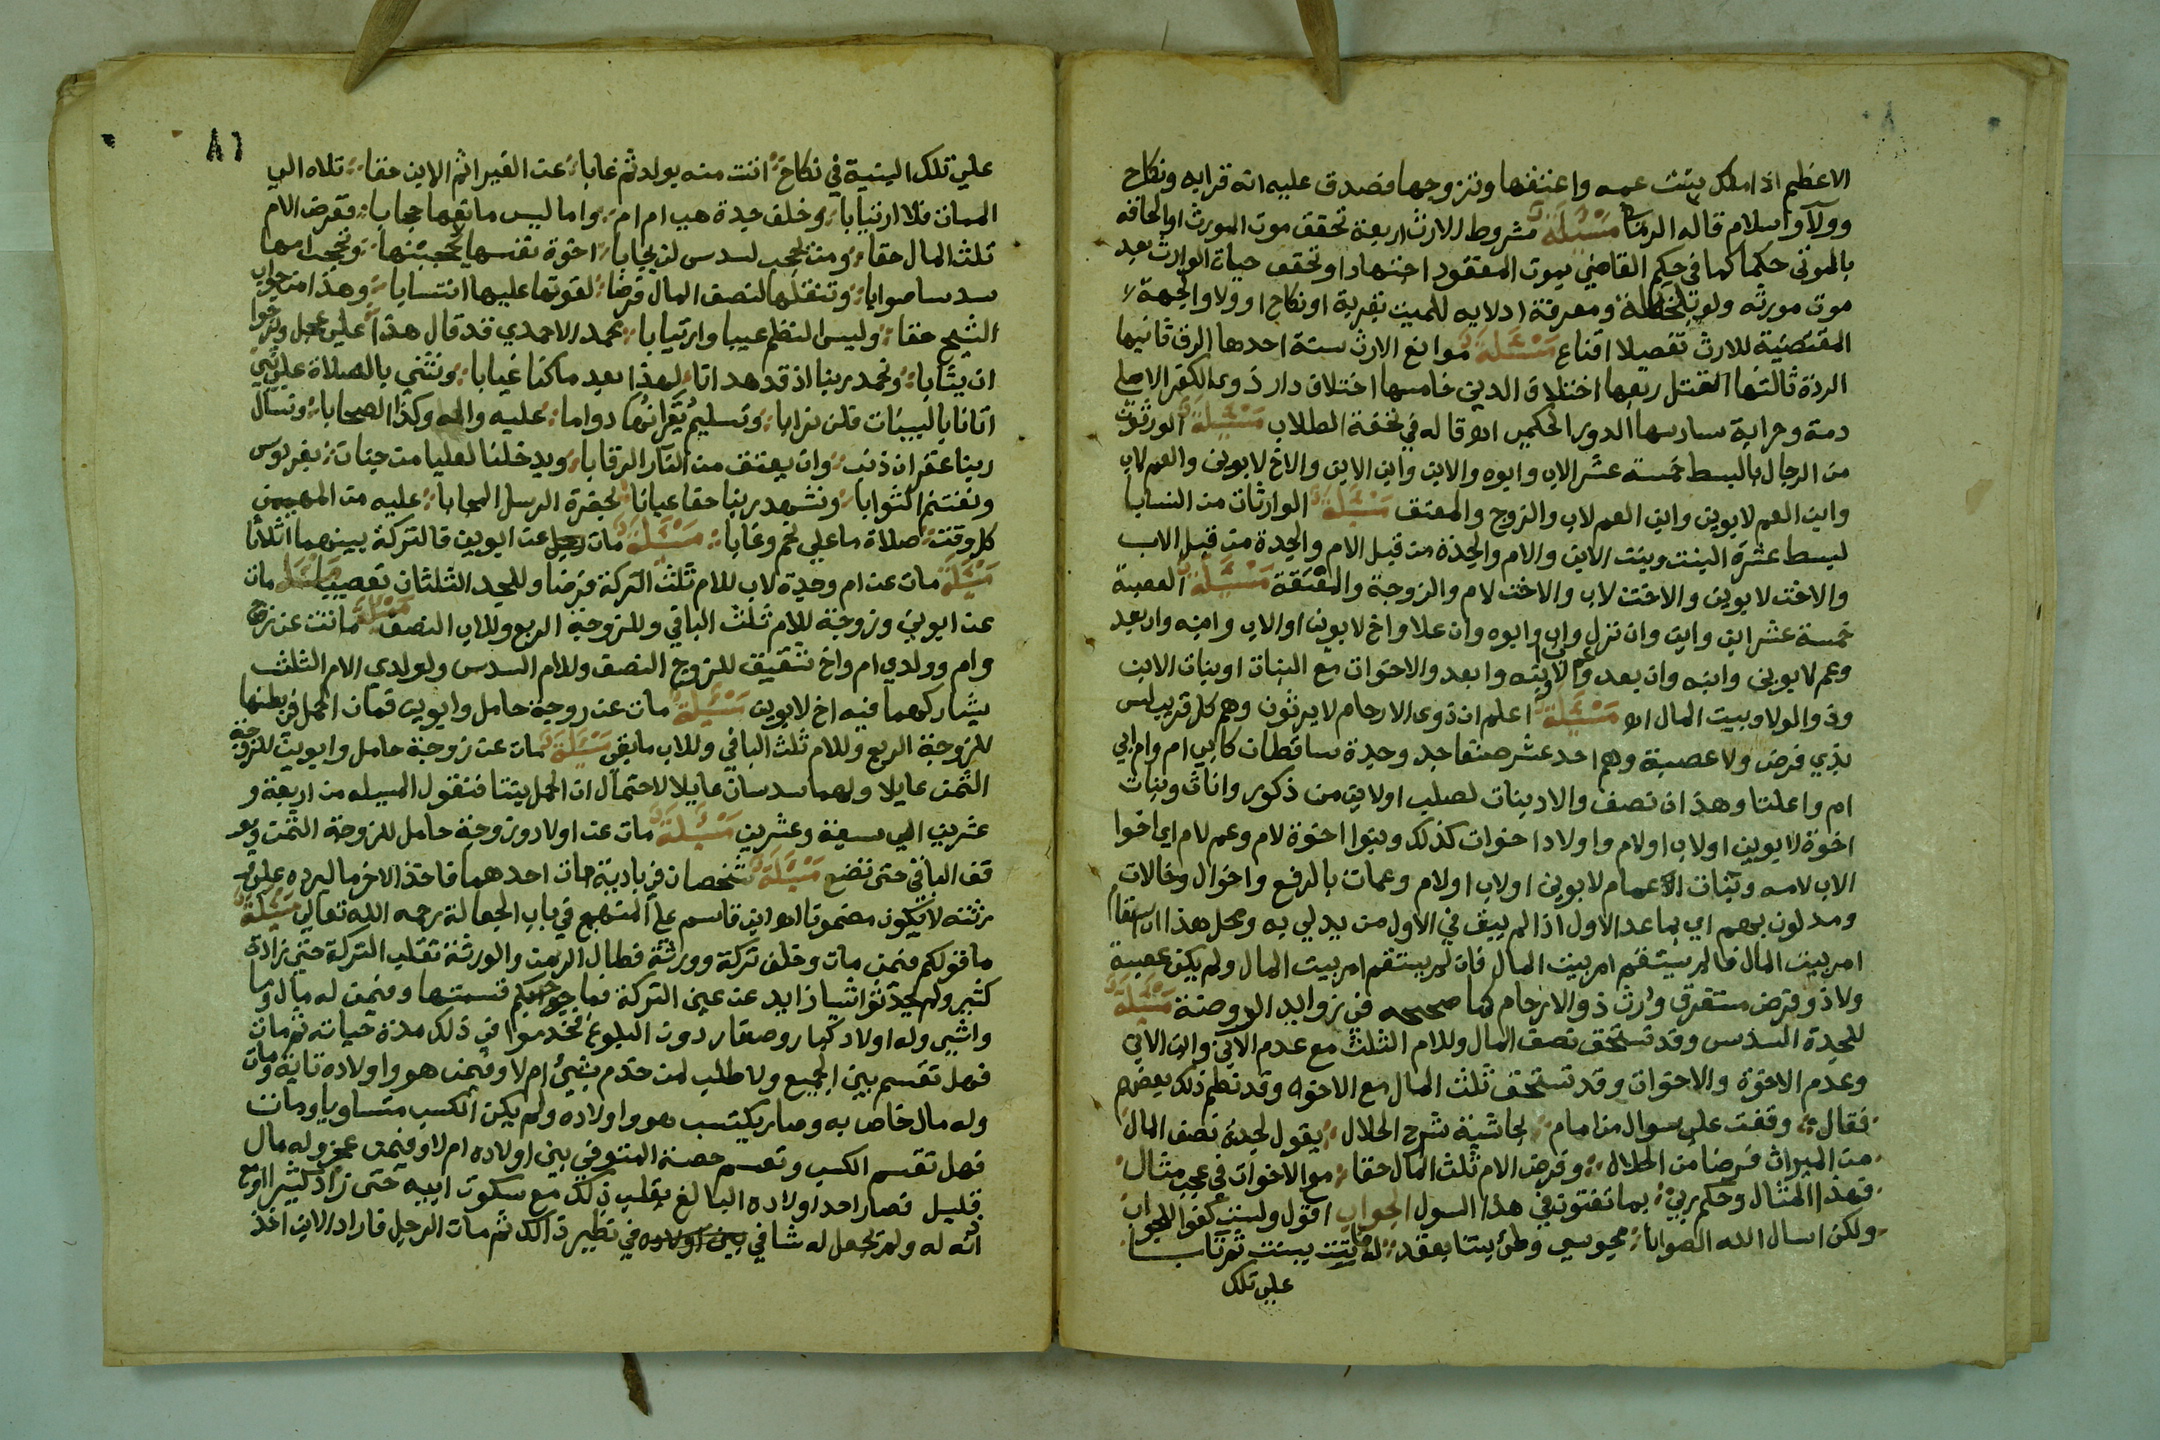 الاعظم اذا ملك بنت عمه واعتقها وتزوجها فصدق عليه انه قرابه ونكاح
وولآ واسلام قاله الرملى مسئلة شروط الارث اربعة تحقق موت المورث او الحاقه
بالموتى حكما كما في حكم القاضي بموت المفقود اجتهادا وتحقق حياة الوارث بعد
موت مورثه ولو بلحظة ومعرفة ادلايه للميت بقربة او نكاح او ولا والجهة
المقتضية للارث تفصيلا اقناع مسئلة موانع الارث ستة احدها الرق ثانيها
الردة ثالثها القتل ربعها اختلاف الدين خامسها اختلاف دار ذوى الكفر الاصلى
دمة وحرابة سادسها الدور الحكمى اه قاله في تحفة الطلاب مسئلة الورثون
من الرجال بالبسط خمسة عشر الاب وابوه والابن وابن الابن والاخ لابوين والعم لاب
وابن العم لابوين وابن العم لاب والزوج والمعتق مسئلة الوارثات من النسا با
لبسط عشرة البنت وبنت الابن والام والجدة من قبل الام والجدة من قبل الاب
والاخت لابوين والاخت لاب والاخت لام والزوجة والمعتقة مسئلة العصبة
خمسة عشر ابن وابن وان نزل واب وابوه وان علا واخ لابوين او لاب وابنه وان بعد
وعم لابوين وابنه وان بعد وابعد والاخوات مع البنات او بنات الابن
وذو الولا وبيت المال اه مسئلة اعلم ان ذوى الارحام لا يرثون وهم كل قريب ليس
بذي فرض ولا عصبة وهم احد عشر صنفا جد وجدة ساقطان كابي ام وام ابي
ام وان علتا وهذان صنف والاد بنات لصلب او لابن من ذكور واناث وبنات
اخوة لابوين او لاب او لام واولاد اخوات كذلك وبنوا اخوة لام وعم لام اي اخوا
الاب لامه وبنات الاعمام لابوين او لاب او لام وعمات بالرفع واخوال وخالات
ومدلون بهم اي بما عدا الاول اذا لم يبق في الاول من يدلي به ومحل هذا ان استقام
امر بيت المال فالم يستقم امر بيت المال فان لم يستقم امر بيت المال ولم يكن عصبة
ولا ذو فرض مستغرق وارث ذو الارحام كما صححه في زوايد الروضة مسئلة
للجدة السدس وقد تستحق نصف المال وللام الثلث مع عدم الابن وابن الابن
وعدم الاخوة والاخوات وقد تستحق ثلث المال مع الاخوه وقد نظم ذلك بعضهم
فقال وقفت على سوال من امام لحاشية شرح الحلال يقول لجدة نصف المال
من الميراث فرضا من الحلال وفرض الام ثلث المال حقا مع الاخوات في عجب مثال
فهذا المثال وحكم ربي بما تفتون في هذا السول الجواب اقول ولست كفوا للجواب
ولكن اسال الله الصوابا مجوسي وطئ بنتا بعقد له ماتت ببنت ثم تابا
على تلك
٨٦
على تلك البنية في نكاح اتت منه بولد ثم غابا عن الغير اثم الابن حقا تلاه الى
الممات فلا ارتيابا وخلف جدة هي ام ام واما ليس مانعها حجابا ففرض الام
ثلث المال حقا ومن تحجب لسدس لن يجابا اخوة نفسها تحجبنها وتحجب امها
سدسا صوابا وتنقلها لنصف المال فرضا لقوتها عليها انتسابا وهذا من جواب
الشيخ حقا وليس النظم عيبا وارتيابا محمد الاحمدي قد قال هذا على عجل ويرجوا
ان يثابا ونحمد ربنا اذ قد هدانا لهذا بعد ما كنا غيابا ونثني بالصلاة على نبي
اتانا بالبينات فلن نرابا وتسليم يقرانها دواما عليه والله وكذا الصحابا ونسال
ربنا غفران ذنب وان يعتق من النار الرقابا ويدخلنا لعليا من جنات بفردوس
ونغتنم الثوابا ونشهد ربنا حقا عيانا بحضرة الرسل المجابا عليه من المهيمن
كل وقت صلاة ما على نجم وغابا مسئلة مات رجل عن ابوين فالتركة بينهما اثلاثا
مسئلة مات عن ام وجدة لاب للام ثلث التركة فرضا وللجد الثلثان تعصيبا مسئلة مات
عن ابوين وزوجة للام ثلث الباقي وللزوجة الربع وللاب النصف مسئلة ماتت عن زوج
وام وولدي ام واخ شقيق للزوج النصف وللام السدس ولولدي الام الثلث
يشاركهما فيه اخ لابوين مسئلة مات عن زوجة حامل وابوين فمات الحمل في بطنها
للزوجة الربع وللام ثلث الباقي وللاب مابقى مسئلة مات عن زوجة حامل وابوين للزوجة
الثمن عايلا ولهما سدسان عايلا لاحتمال ان الحمل بنتا فتقول المسله من اربعة و
عشرين الى سبعة وعشرين مسئلة مات عن اولاد وزوجة حامل للزوجة الثمن ويو
قف الباقي حتى تضع مسئلة شخصان في بادية مات احدهما فاخذ الاخر ماليرده على و
رثته لا يكون مضمونا اه ابن قاسم على المنهج في باب الجعالة رحمه الله تعالى مسئلة
ما قولكم فيمن مات وخلف تركة وورثة فطال الزمن والورثة تقلب التركة حتى زادة
كثير ولم يحدثوا شيا زايد عن عين التركة فما جوابكم قسمتها وفيمن له مال وما
واشى وله اولاد كبار وصغار دون البلوغ فخدموا في ذلك مدة حياته ثم مات
فهل تقسم بين الجميع ولا طلب لمن خدم بشئ ام لا وفيمن هو واولاده تايه ومات
وله مال خاص به وصار يكتسب هو واولاده ولم يكن الكسب متساويا ومات
فهل تقسم الكسب وتعسم حصة المتوفي بين اولاده ام لا وفيمن عجز وله مال
قليل فصار احد اولاده البالغ يقلب ذلك مع سكوت ابيه حتى زاد كثيرا
انه له ولم يجعل له شا في نظير ذالك ثم مات الرجل فاراد الابن اخذ